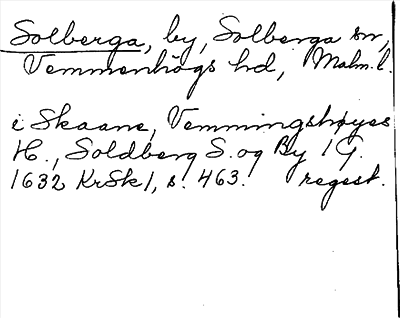 Solberga, by, Solberga sn,
Vemmenhögs hd, Malm. l.
i Skaane, Vemmingshøyes
H., Soldberg S. og By 1 G.
1632 KrSk1, s. 463. regest.